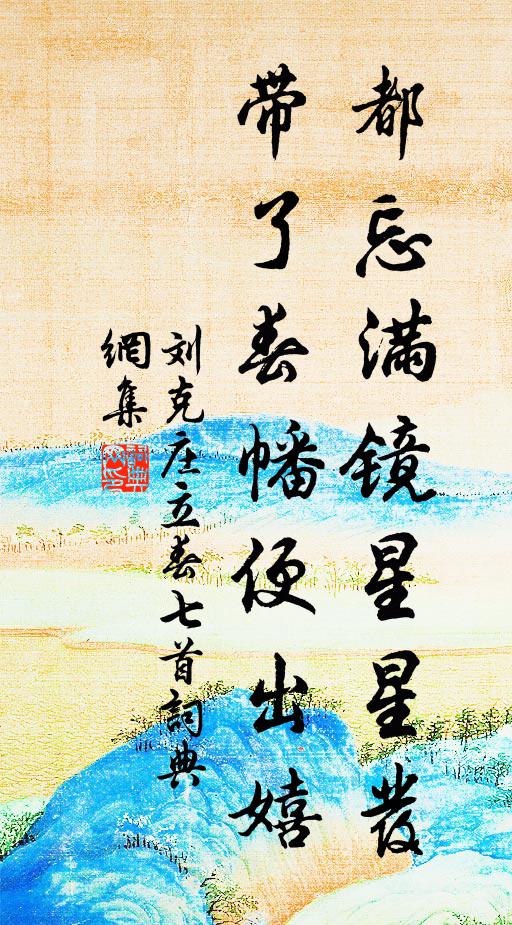 都忘满镜星星發
带了春幡便出嬉
刘克庄立春七首詞典
網集